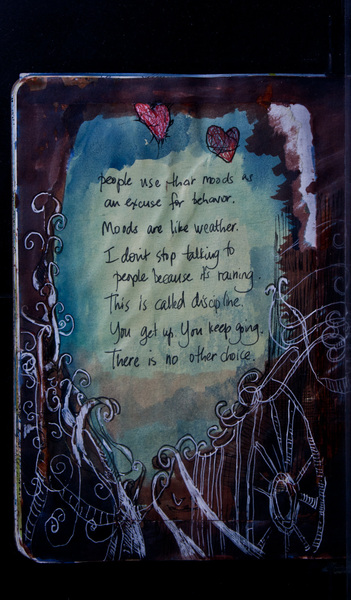 people use their moods as
an excuse for behavior.
Moods are like weather.
I don't stop talking to
people because it's raining.
This is called discipline.
You get up. You keep going.
There is no other choice.